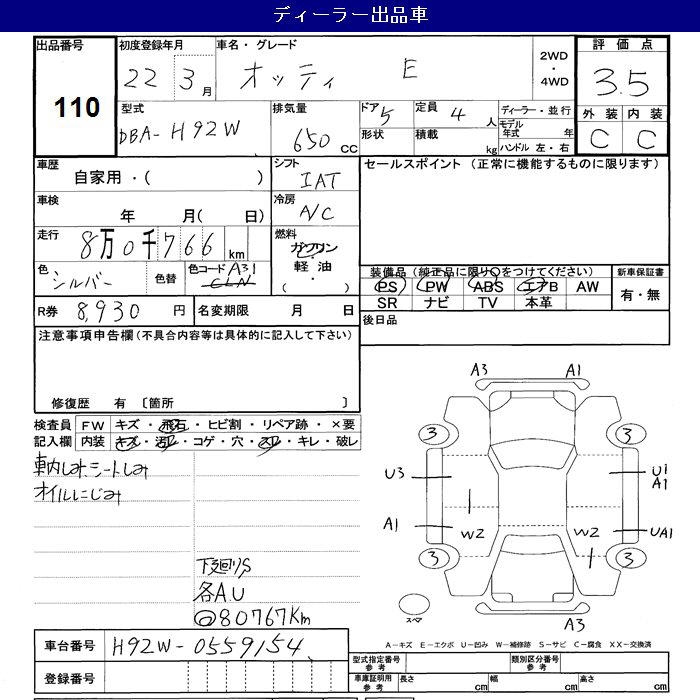 ディーラー出品車
出品番号 初度登録年月 車名・グレード 評価点
110 22 3月 オッティ E 2WD・4WD 3.5
型式 排気量 ドア 5 定員 4人 ディーラー・並行 外装 内装
DBA-H92W 650cc 形状 積載 kg モデル年式 年 C C
ハンドル 左・右
車歴 シフト セールスポイント(正常に機能するものに限ります)
自家用・( ) IAT
車検 冷房
年 月( 日) A/C
走行 8万0千766km 燃料
ガソリン・軽油・( )
色 シルバー 色替 色コード A31 CLN 装備品(純正品に限り○をつけてください) 新車保証書
PS PW ABS エアB AW 有・無
R券 8,930円 名変期限 月 日 SR ナビ TV 本革
後日品
注意事項申告欄(不具合内容等は具体的に記入して下さい)
修復歴 有 〔箇所 〕
検査員 FW キズ・飛石・ヒビ割・リペア跡・×要
記入欄 内装 キズ・汚レ・コゲ・穴・スレ・キレ・破レ
車内しみ シートしみ
オイルにじみ
下廻りS
各A.U
80767Km
A3 A1
3 3
U3 U1
A1
1
A1 W2 W2 UA1
1
3 3
スペア
A3
A-キズ E-エクボ U-凹み W-補修跡 S-サビ C-腐食 XX-交換済
車台番号 H92W-0559154
型式指定番号 参考 類別区分番号 参考
登録番号
車庫証明用 参考 長さ cm 幅 cm 高さ cm